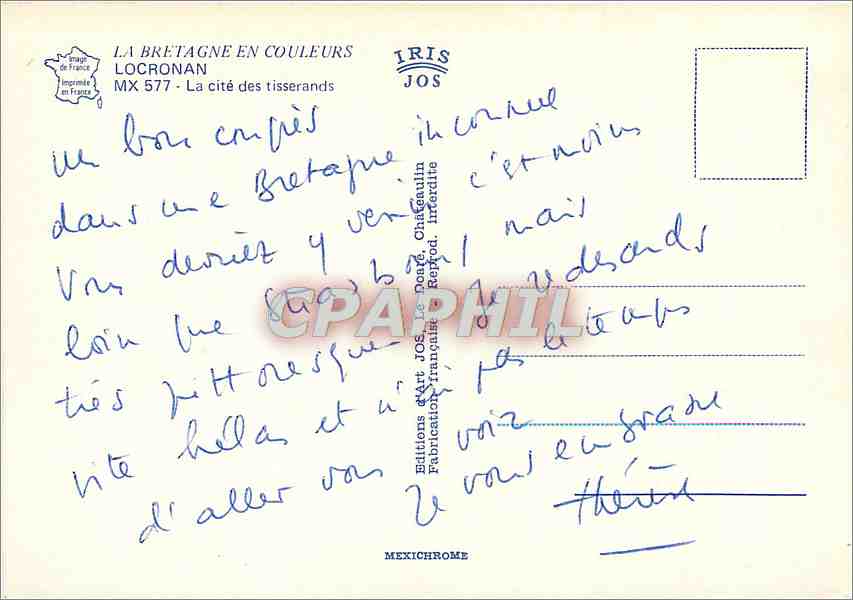 Image
de France
Imprimée
en France
LA BRETAGNE EN COULEURS
LOCRONAN
MX 577 - La cité des tisserands
IRIS
JOS
un bon congrès
dans une Bretagne inconnue
Vous devriez y venir c'est moins
loin que Strasbourg mais
très pittoresque. Je redescends
vite hélas et n'ai pas le temps
d'aller vous voir
Je vous embrasse
Thérèse
Editions d'Art JOS, Le Doaré, Châteaulin
Fabrication française - Reprod. interdite
CPAPHIL
MEXICHROME